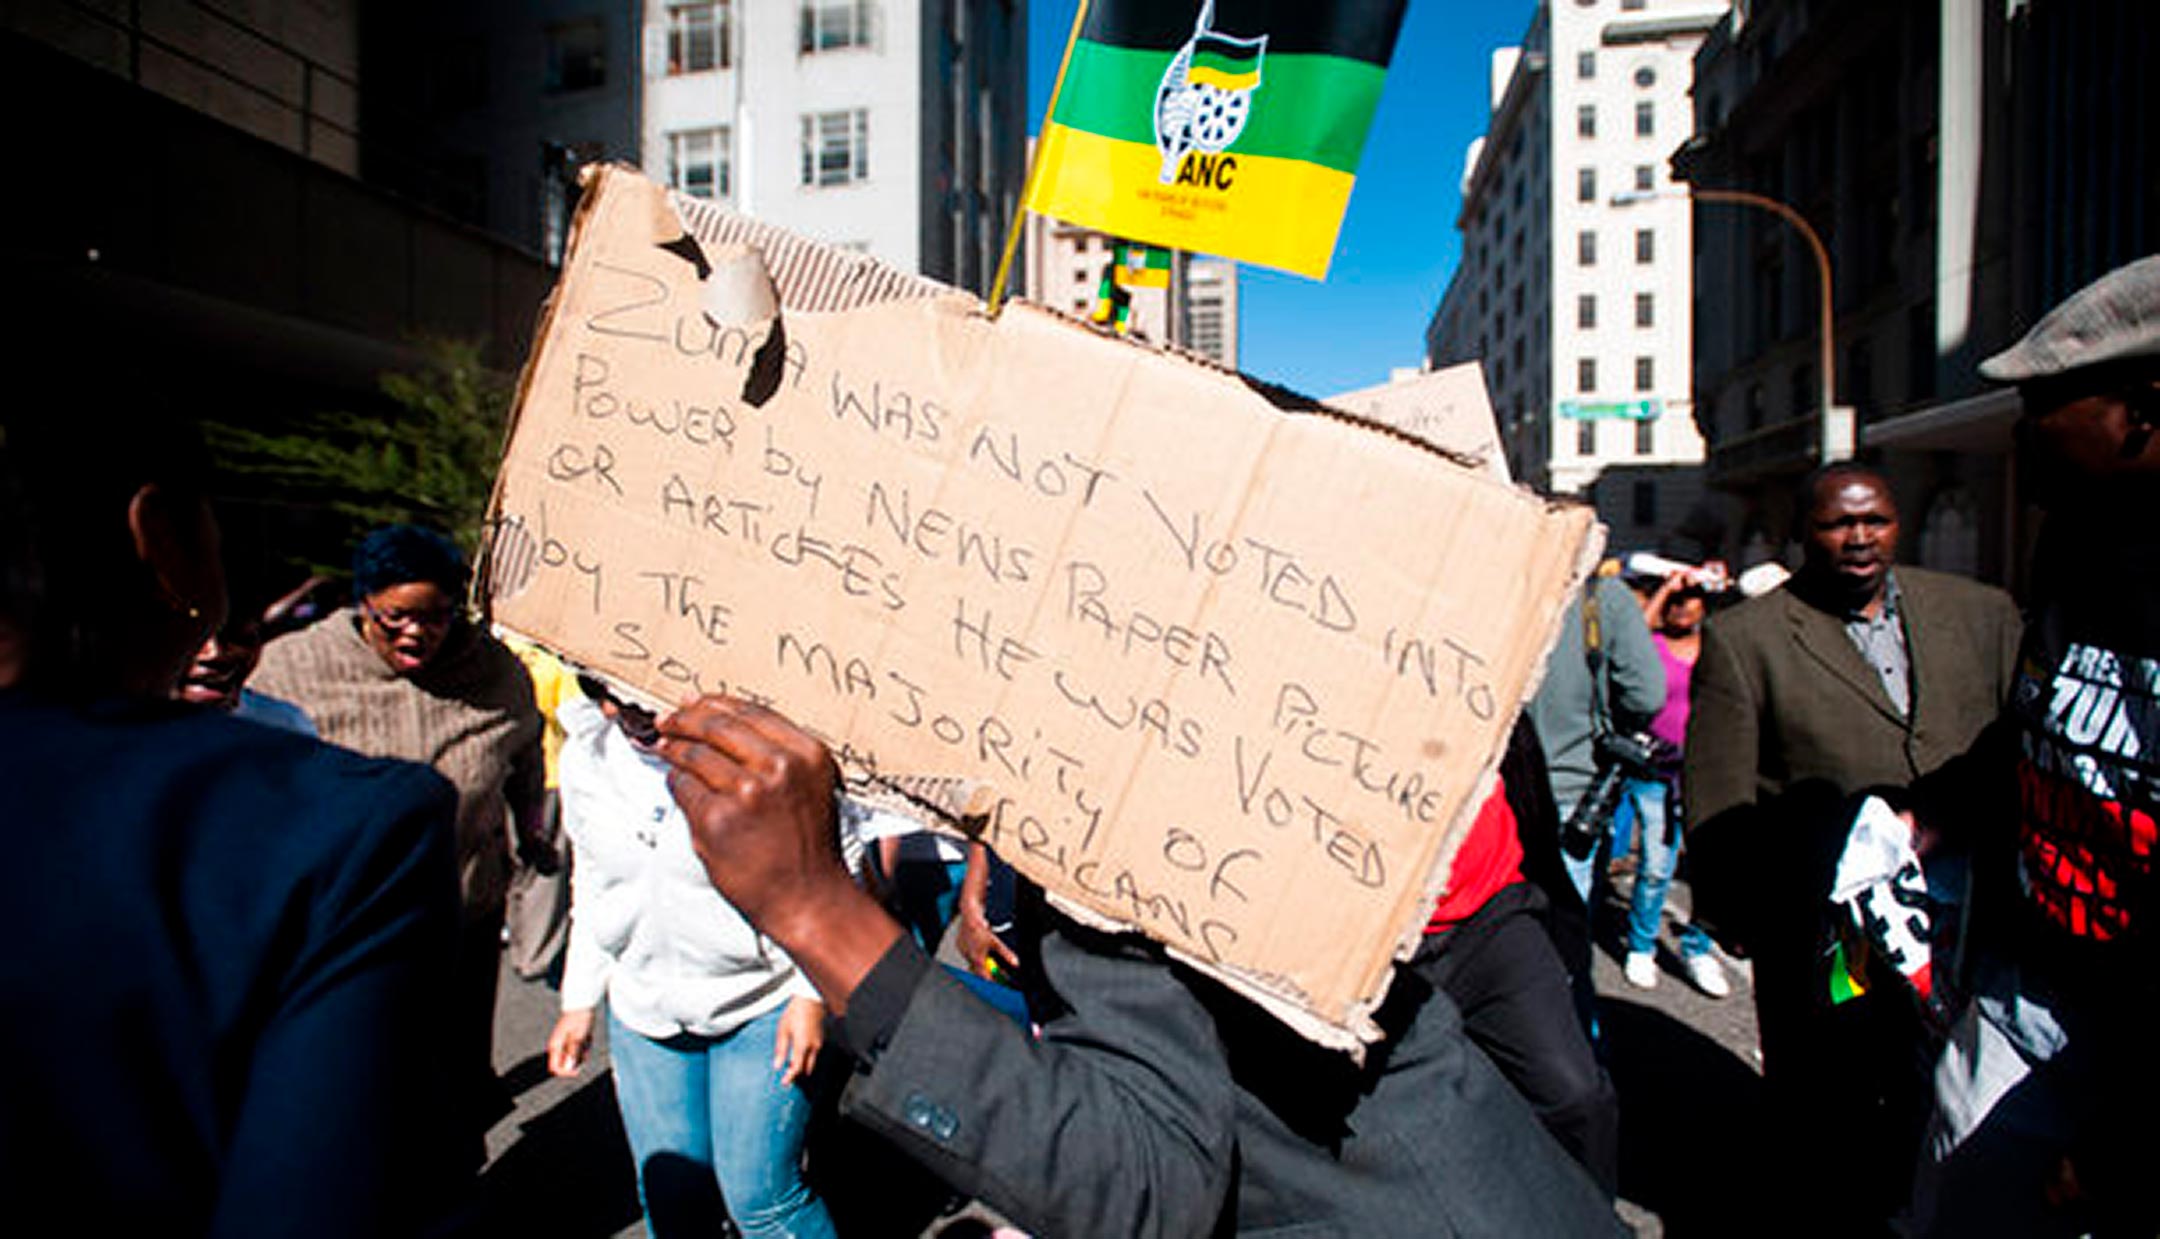 ANC
ZumA WAS NOT VOTED INTO
POWER by NEWS PAPER PiCTURE
OR ARTiCLES HE WAS VOTED
by THE MAJORiTy OF
SOUTH AFRICANS
PRES
ZUM
TES